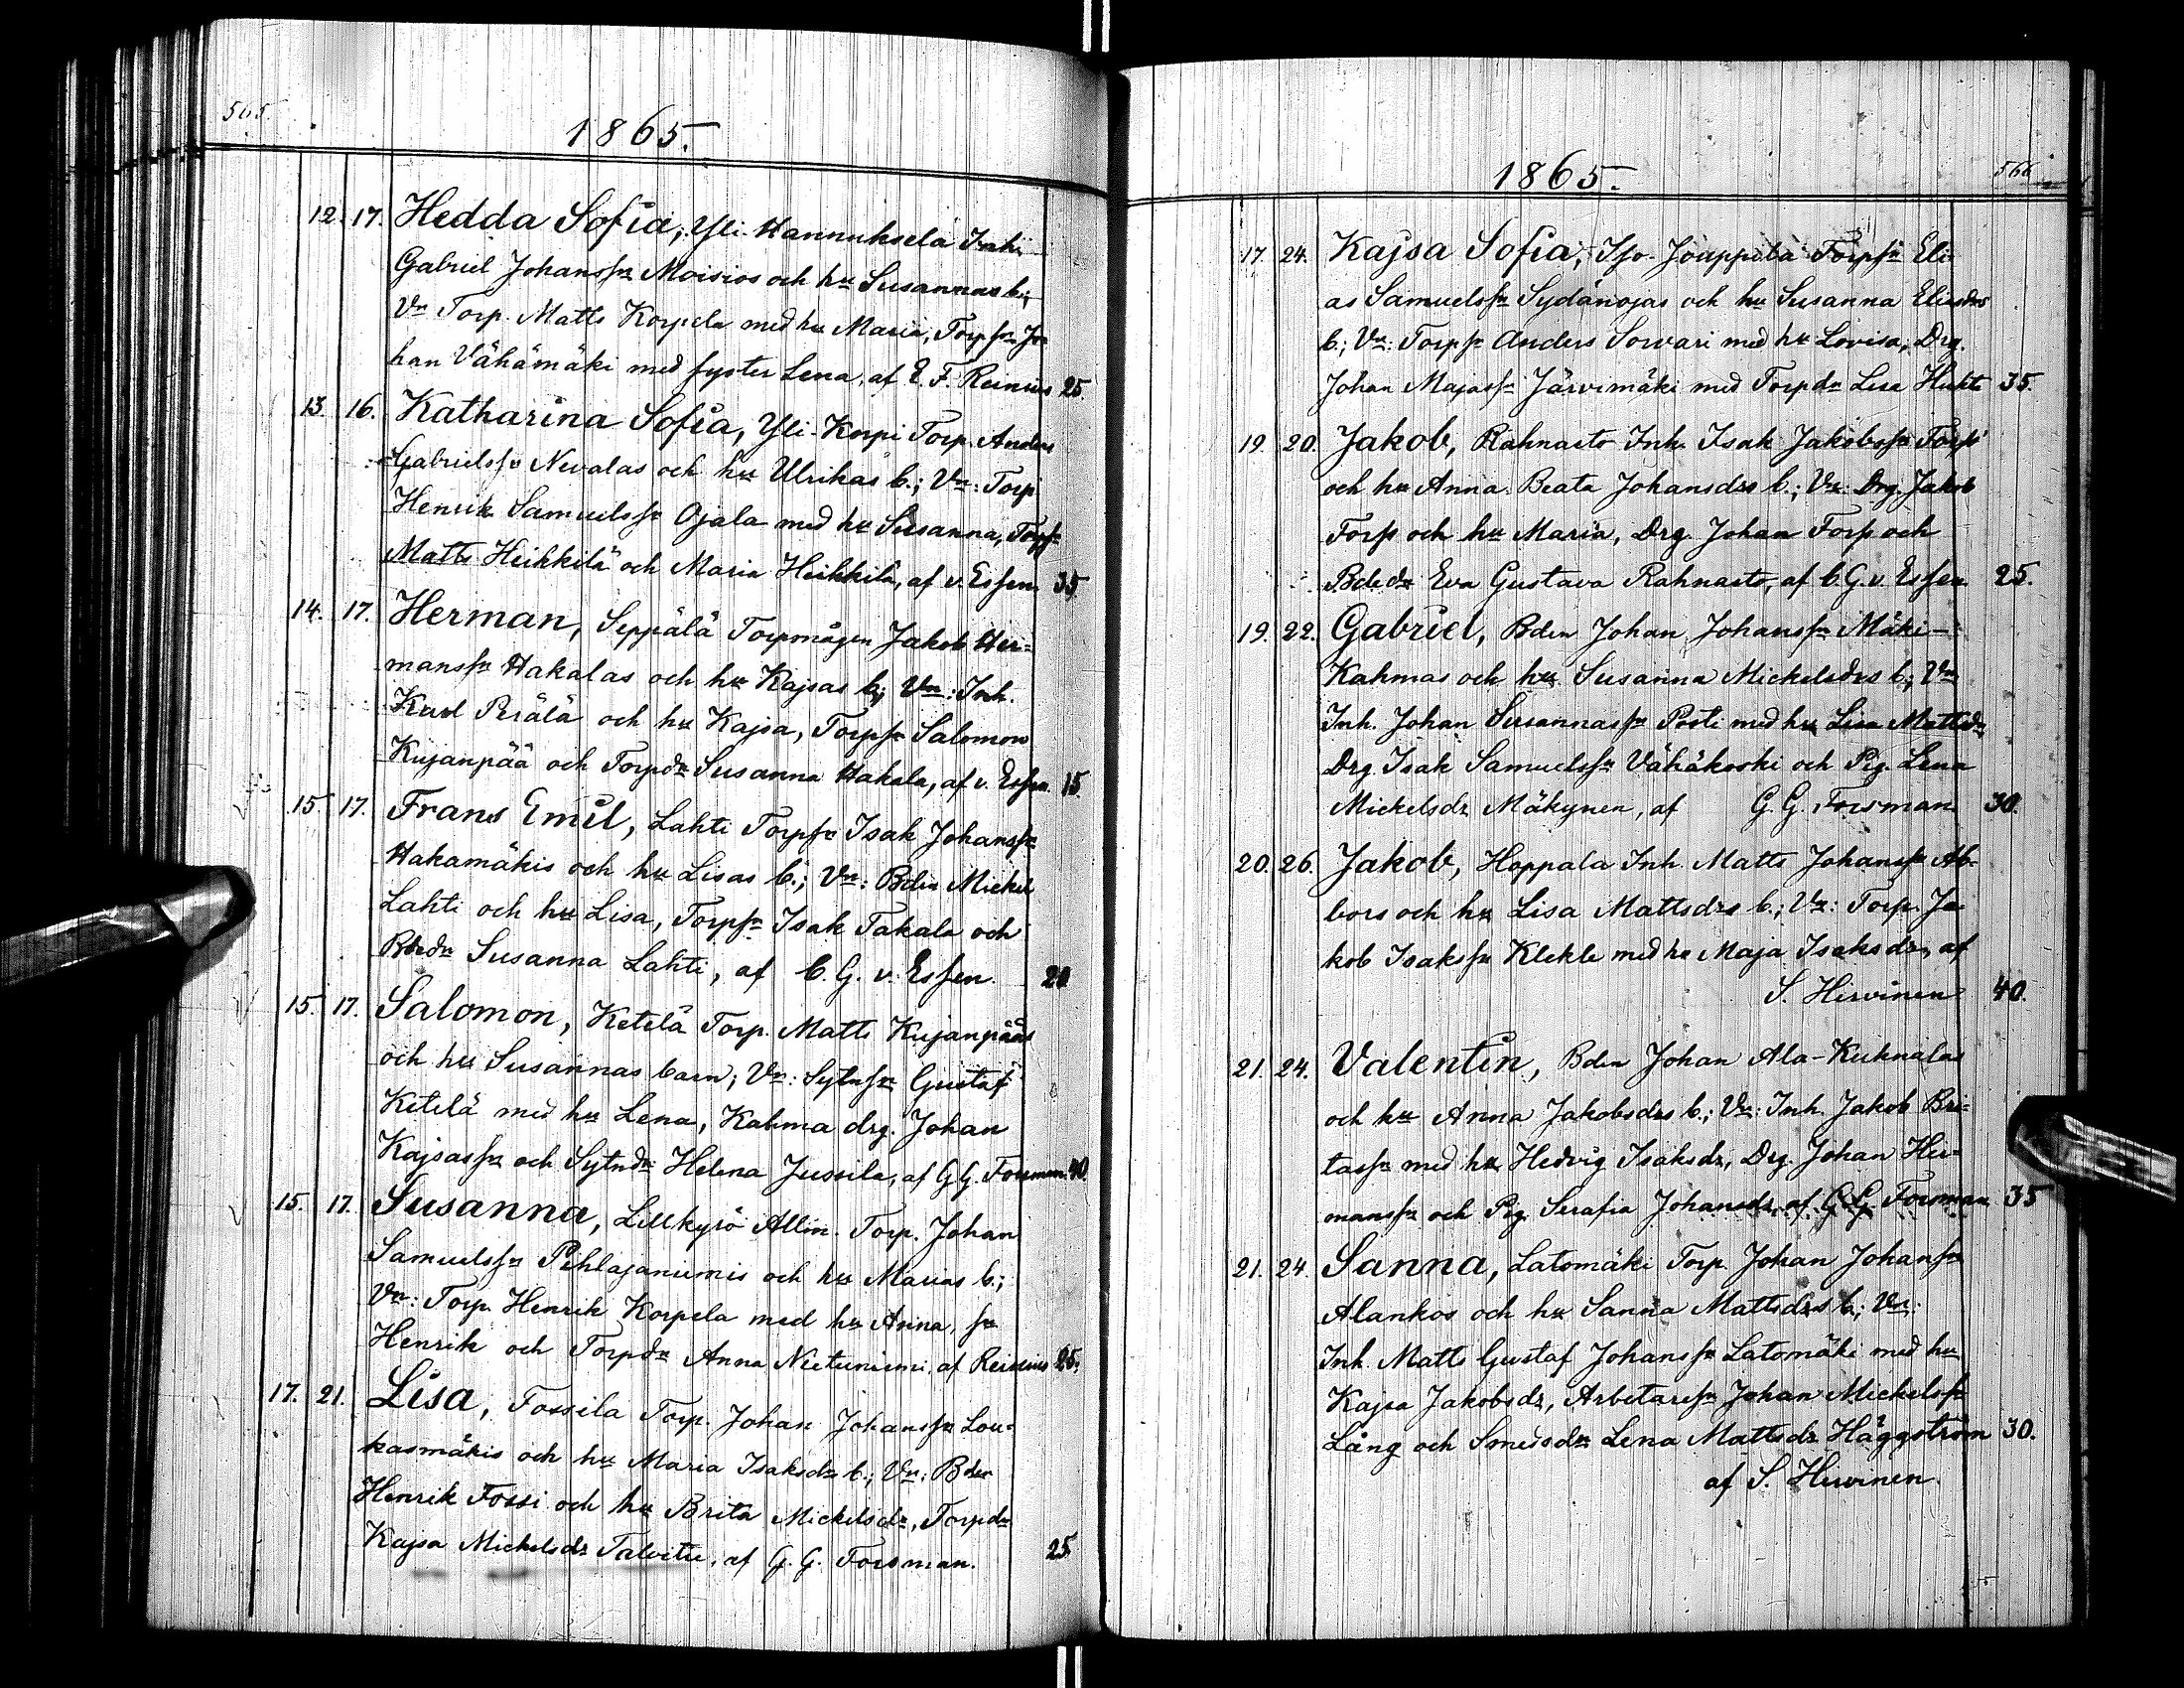 565.
1865.
12. 17. Hedda Sofia, Yli-Hannuksela Inh.
Gabriel Johanss:n Moisios och hu Susannas b.;
Vn Torp. Matts Korpela med hu Maria, Torpss:n Jo-
han Vähämäki med syster Lena, af E. F. Reinius 25.
13. 16. Katharina Sofia, Yli-Korpi Torp. Anders
Gabrielss:n Nevalas och hu Ulrikas b.; Vn: Torp.
Henrik Samuelss:n Ojala med hu Susanna, Torpss:n
Matts Heikkilä och Maria Heikkilä, af v. Essen 35.
14. 17. Herman, Seppälä Torpmågen Jakob Her-
manss:n Hakalas och hu Kajsas b.; Vn: Inh.
Karl Perälä och hu Kajsa, Torpss:n Salomon
Kujanpää och Torpdr Susanna Hakala, af v. Essen. 15.
15. 17. Frans Emil, Lahti Torpss:n Isak Johanss:n
Hakamäkis och hu Lisas b.; Vn: Bden Mickel
Lahti och hu Lisa, Torpss:n Isak Takala och
Bdedr Susanna Lahti, af C. G. v. Essen. 20
15. 17. Salomon, Ketelä Torp. Matts Kujanpääs
och hu Susannas barn; Vn: Sytnss:n Gustaf
Ketelä med hu Lena, Kahma drg. Johan
Kajsass:n och Sytndr Helena Jussila, af G. G. Forsman. 40.
15. 17. Susanna, Lillkyrö Allm. Torp. Johan
Samuelss:n Pihlajaniemis och hu Marias b.;
Vn: Torp. Henrik Korpela med hu Anna, sn
Henrik och Torpdr Anna Nietuniemi, af Reinius 25.
17. 21. Lisa, Fossila Torp. Johan Johanss:n Lou-
kasmäkis och hu Maria Isaksdrs b.; Vn: Bden
Henrik Fossi och hu Brita Mickelsdr, Torpdr
Kajsa Mickelsdr Talvitie, af G. G. Forsman. 25
566
1865.
17. 24. Kajsa Sofia, Iso-Joappila Torpss:n Eli-
as Samuelss:n Sydänojas och hu Susanna Eliasdrs
b.; Vn: Torpss:n Anders Sorvari med hu Lovisa, Drg.
Johan Majass:n Järvimäki med Torpdr Lisa Huhta 35.
19. 20. Jakob, Rahnasto Inh. Isak Jakobss:n Forss
och hu Anna Beata Johansdrs b.; Vn: Drg. Jakob
Forss och hu Maria, Drg. Johan Forss och
Bdedr Eva Gustava Rahnasto, af C. G. v. Essen. 25.
19. 22. Gabriel, Bden Johan Johanss:n Mäki-
Kahmas och hu Susanna Mickelsdrs b.; Vn
Inh. Johan Susannass:n Posti med hu Lisa Mattsdr
Drg. Isak Samuelss:n Vähäkoski och Pig. Lena
Mickelsdr Mäkynen, af G. G. Forsman 30.
20. 26. Jakob, Hoppala Inh. Matts Johanss:n Ab-
bors och hu Lisa Mattsdrs b.; Vn: Torp. Ja-
kob Isakss:n Klekle med hu Maja Isaksdr, af
S. Hirvinen 40.
21. 24. Valentin, Bden Johan Ala-Kuhnalas
och hu Anna Jakobsdrs b.; Vn: Inh. Jakob Bri-
tass:n med hu Hedvig Isaksdr, Drg. Johan Her-
manss:n och Pig. Serafia Johansdr, af G. G. Forsman 35
21. 24. Sanna, Latomäki Torp. Johan Johanss:n
Alankos och hu Sanna Mattsdrs b.; Vn:
Inh. Matts Gustaf Johanss:n Latomäki med hu
Kajsa Jakobsdr, Arbetaress:n Johan Mickelss:n
Lång och Smedsdr Lena Mattsdr Häggström 30.
af S. Hirvinen.